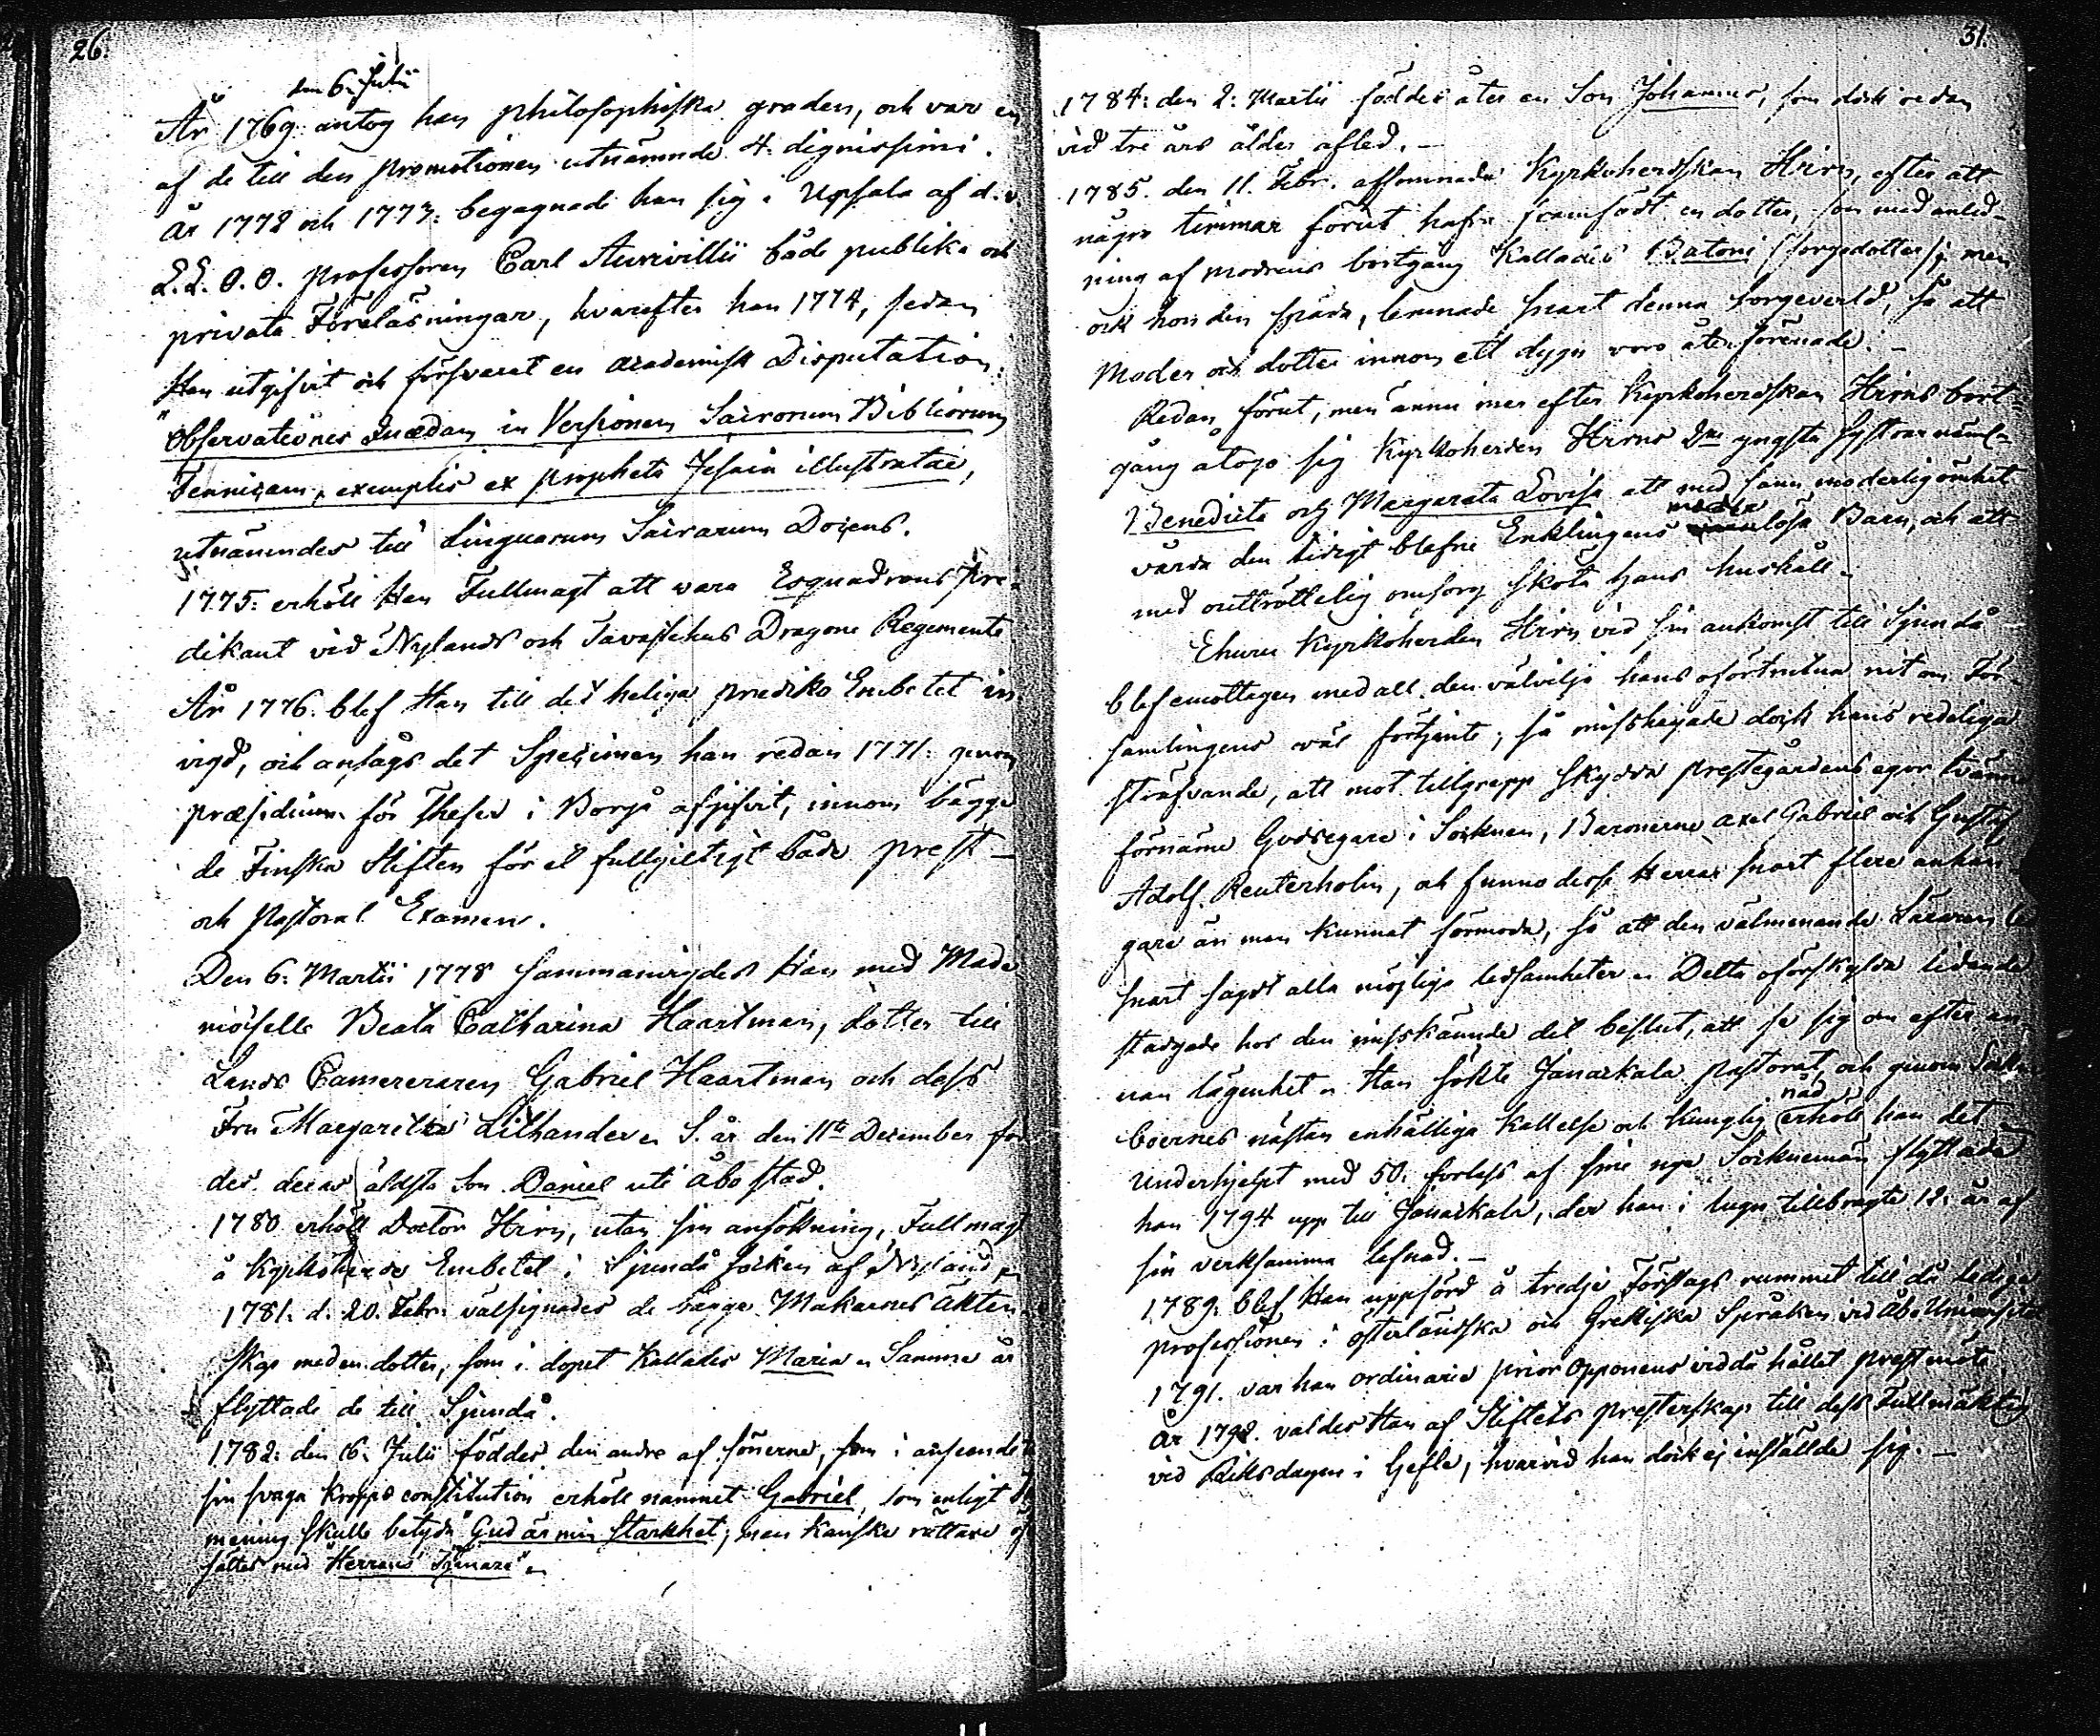 26.
den 6. Julii
År 1769. antog han philosophiska graden, och var en
af de till den promotionen utnämnde 4. dignissimi.
År 1772 och 1773. begagnade han sig i Upsala af d. v.
L.L. O.O. Professoren Carl Aurivillii både publika och
privata Föreläsningar, hvarefter han 1774, sedan
Han utgifvit och försvarat en academisk Disputation:
"Observationes Quædam in Versionem Sacrorum Bibliorum
Fennicam, exemplis ex propheta Jesaia illustratae,
utnämndes till Linguarum Sacrarum Docens.
1775: erhöll Han Fullmagt att vara Esquadrons Pre-
dikant vid Nylands och Tavastehus Dragone Regemente
År 1776. blef Han till det heliga prediko Embetet in
vigd, och ansågs det Specimen han redan 1771: genom
præsidium för Theser i Borgå afgifvit, innom bägge
de Finska Stiften för et fullgiltigt både prest-
och Pastoral Examen.
Den 6: Martii 1778 sammanvigdes Han med Made
moiselle Beata Catharina Haartman, dotter till
Lands Camereraren Gabriel Haartman och dess
Fru Margaretha Lilhander. S. år den 11te December föd
des deras äldsta Son Daniel uti Åbo stad.
1780 erhöll Doctor Hirn, utan sin ansökning, Fullmagt
å Kyrkoherde Embetet i Sjundå socken af Nyland
1781. d. 20. Febr. välsignades de bägge Makarnes äkten-
skap med en dotter, som i dopet kallades Maria. Samma år
flyttade de till Sjundå.
1782: den 16. Julii föddes den andre af sönerne, som i anseende
sin svaga kropps constitution erhöll namnet Gabriel, som enligt
mening skulle betyda "Gud är min starkhet; men kanske rättare öf
sättes med "Herrans Tjenare"
31.
1784: den 2: Martii föddes åter en Son Johannes, som dock redan
vid tre års ålder afled. –
1785. den 11. Febr. afsomnade Kyrkoherdskan Hirn, efter att
några timmar förut hafva framfödt en dotter, som med anled-
ning af modrens bortgång kallades Batoni (sorgedotter); men
ock hon den späda, lemnade snart denna sorgeverld, så att
Moder och dotter innom ett dygn voro åter förenade. –
Redan förut, men ännu mer efter Kyrkoherdskan Hirns bort-
gång åtogo sig Kyrkoherden Hirns 2ne yngsta systrar näml.
Benedicta och Margareta Lovisa att med sann moderlig ömhet
vårda den tidigt blefne Enklingens moderlösa Barn, och att
med outtröttelig omsorg sköta hans hushåll.
Ehuru Kyrkoherden Hirn vid sin ankomst till Sjundå
blef emottagen med all den välvilja hans oförtrutna nit om För-
samlingens väl förtjente; så misshagade dock hans redeliga
sträfvande, att mot tillgrepp skydda prestegårdens egor tvänne
förnäme Godsegare i Socknen, Baronerne Axel Gabriel och Gustaf
Adolf Reuterholm, och funno desse Herrar snart flere anhän
gare än man kunnat förmoda, så att den välmenande Läraren
snart sagdt alla möjliga ledsamheter. Detta oförskylda lidande
stadgade hos den misskände det beslut, att se sig om efter an-
nan lägenhet. Han sökte Janakkala pastorat, och genom Sockne
boernes nästan enhälliga kallelse och Kunglig nåd erhöll han det
Underhjelpt med 50. forlass af sine nya Sockenemän flyttade
han 1794 upp till Janakkala, der han i lugn tillbragte 12. år af
sin verksamma lefnad. –
1789. blef Han uppförd å tredje Förslags rummet till då lediga
professionen i österländska och Grekiska Språken vid Åbo Universitet
1791. var han ordinarie prior Opponens vid då hållet prestmöte
År 1792. valdes Han af Stiftets presterskap till dess Fullmäktig
vid Riksdagen i Gefle, hvarvid han dock ej inställde sig. –